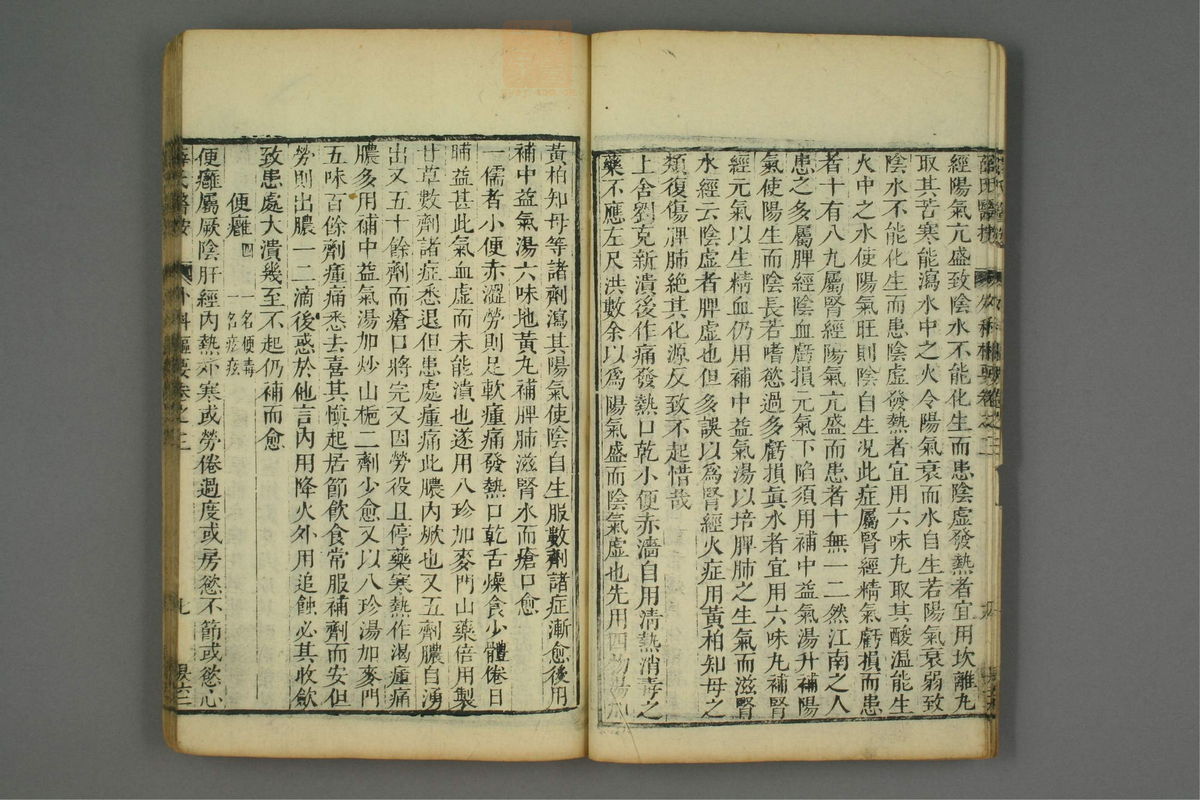 經陽氣亢盛致陰水不能化生而患陰虛發熱者宜用坎離丸
取其苦寒能瀉水中之火令陽氣衰而水自生若陽氣衰弱致
陰水不能化生而患陰虛發熱者宜用六味丸取其酸温能生
火中之水使陽氣旺則陰自生况此症屬腎經精氣虧損而患
者十有八九屬腎經陽氣亢盛而患者十無一二然江南之人
患之多屬脾經陰血虧損元氣下陷須用補中益氣湯升補陽
氣使陽生而陰長若嗜慾過多虧損眞水者宜用六味丸補腎
經元氣以生精血仍用補中益氣湯以培脾肺之生氣而滋腎
水經云陰虛者脾虛也但多誤以爲腎經火症用黄柏知母之
類復傷脾肺絶其化源反致不起惜哉
上舍劉克新潰後作痛發熱口乾小便赤濇自用清熱消毒之
藥不應左尺洪數余以爲陽氣盛而陰氣虛也先用四物湯加
黄柏知母等諸劑瀉其陽氣使陰自生服數劑諸症漸愈後用
補中益氣湯六味地黄丸補脾肺滋腎水而瘡口愈
一儒者小便赤澀勞則足軟瘇痛發熱口乾舌燥食少體倦日
晡益甚此氣血虛而未能潰也遂用八珍加麥門山藥倍用製
甘草數劑諸症悉退但患處瘇痛此膿内焮也又五劑膿自湧
出又五十餘劑而瘡口將完又因勞役且停藥寒熱作渴瘇痛
膿多用補中益氣湯加炒山梔二劑少愈又以八珍湯加麥門
五味百餘劑瘇痛悉去喜其愼起居節飲食常服補劑而安但
勞則出膿一二滴後惑於他言内用降火外用追蝕必其收斂
致患處大潰幾至不起仍補而愈
便癰四 一名便毒 一名痃
便癰屬厥陰肝經内熱外寒或勞倦過度或房慾不節或慾心
薛氏醫按 外科樞要卷之三 九